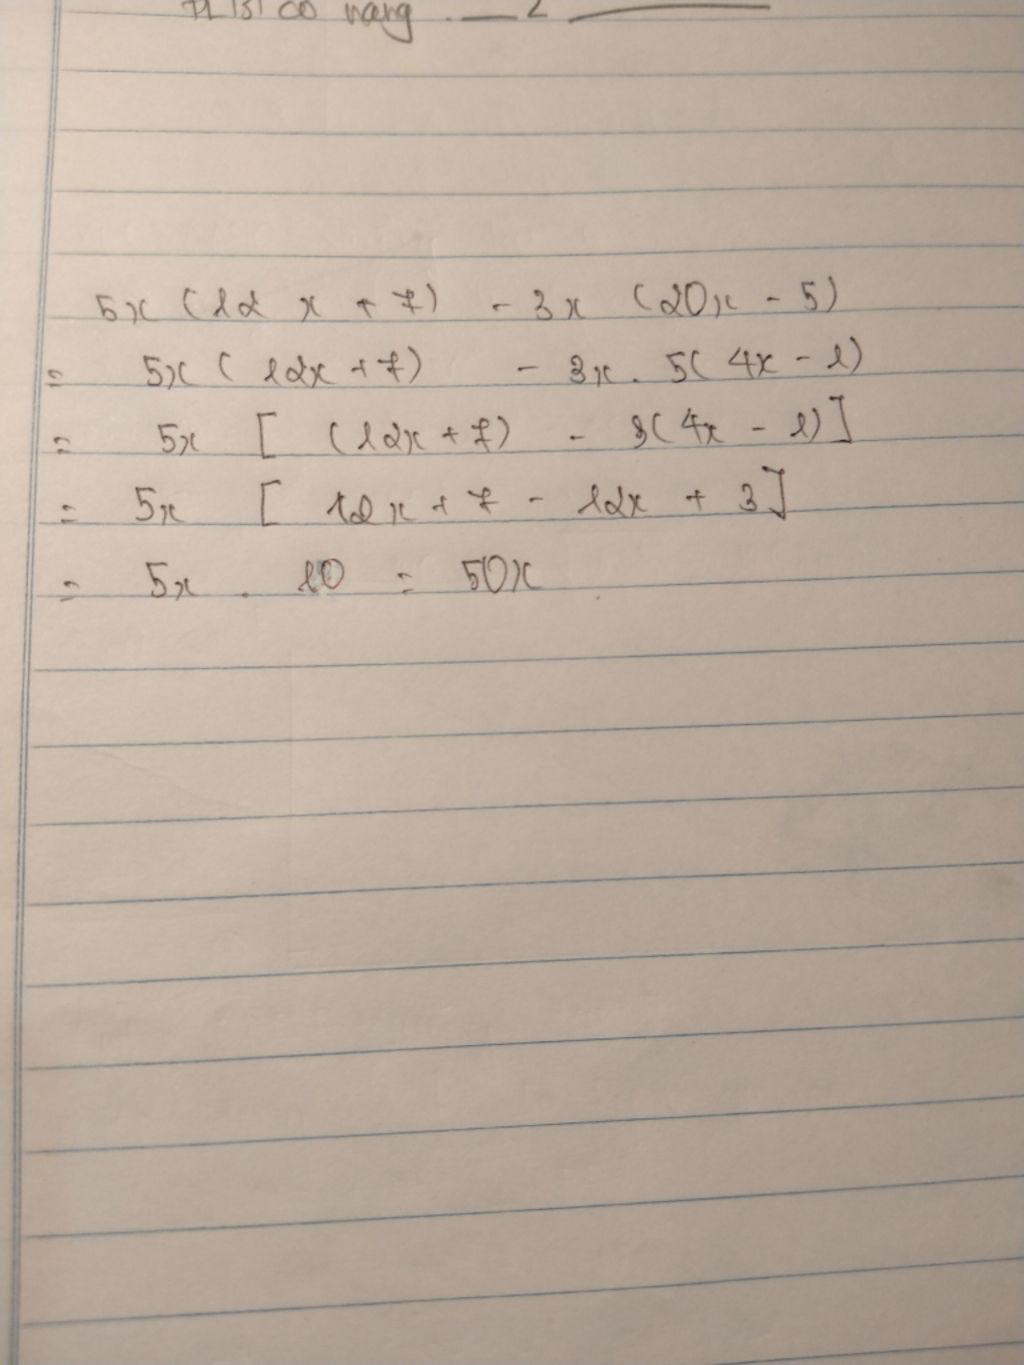 năng
5x (12x + 7) - 3x (20x - 5)
= 5x (12x + 7) - 3x . 5(4x - 1)
= 5x [ (12x + 7) - 3(4x - 1) ]
= 5x [ 12x + 7 - 12x + 3 ]
= 5x . 10 = 50x